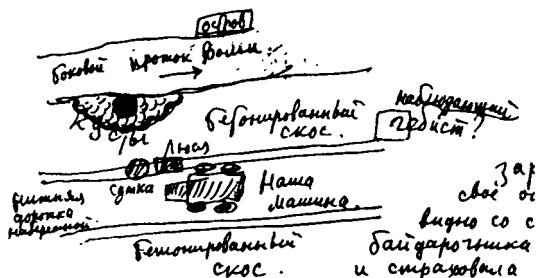 остров
боковой проток Волги
Кусты
Бетонированный
скос.
наблюдающий
гебист?
Люся
сумка
Наша
машина.
нижняя
дорожка
набережной
Бетонированный
скос.
Зар
свое ос
видно со с
байдарочника
и страховала